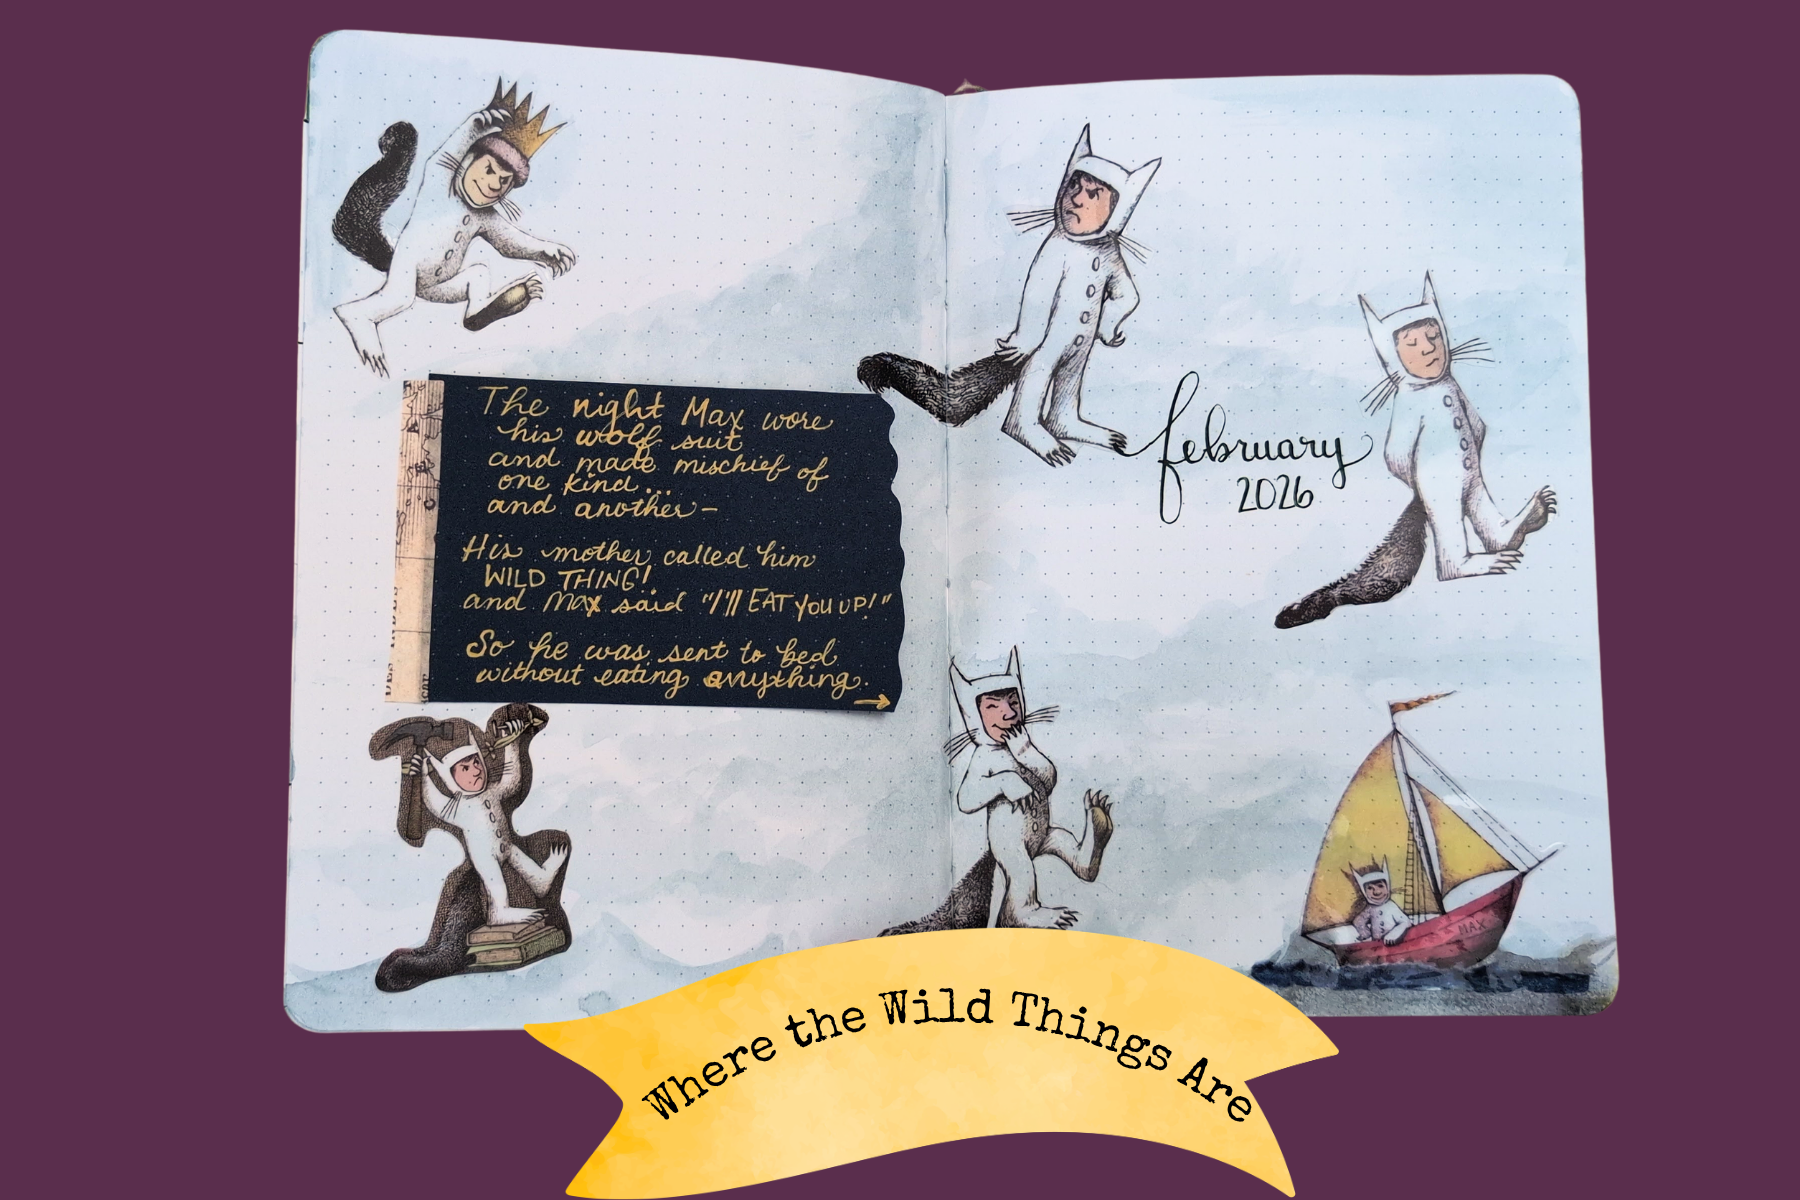 The night Max wore
his wolf suit
and made mischief of
one kind...
and another—
His mother called him
WILD THING!
and Max said "I'll EAT YOU UP!"
So he was sent to bed
without eating anything.
february
2026
MAX
Where the Wild Things Are